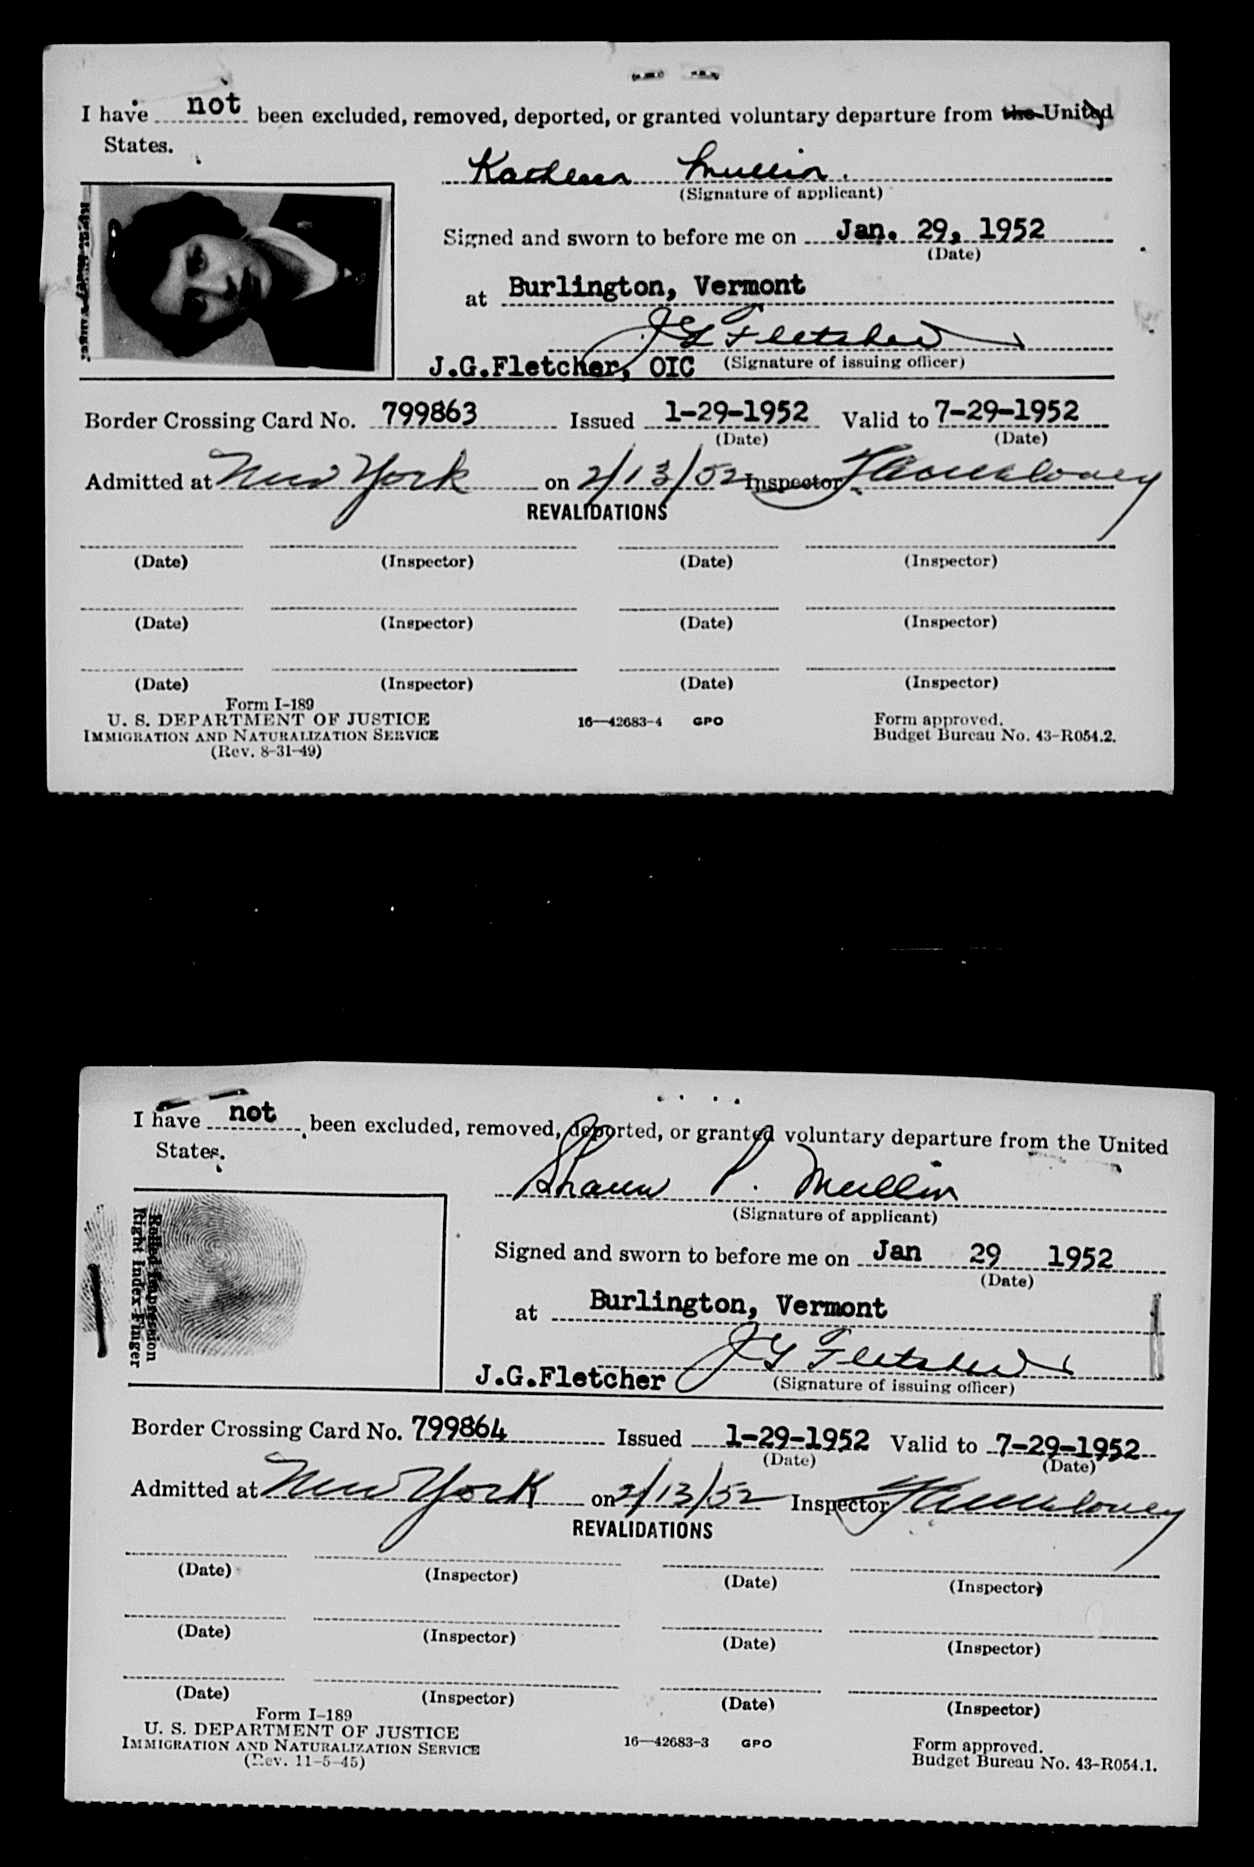 I have not been excluded, removed, deported, or granted voluntary departure from the United
States.
Kathleen Mullin.
(Signature of applicant)
Signed and sworn to before me on Jan. 29, 1952
(Date)
at Burlington, Vermont
J G Fletcher
J.G.Fletcher, OIC (Signature of issuing officer)
Border Crossing Card No. 799863 Issued 1-29-1952 Valid to 7-29-1952
(Date) (Date)
Admitted at New York on 2/13/52 Inspector
REVALIDATIONS
(Date) (Inspector) (Date) (Inspector)
(Date) (Inspector) (Date) (Inspector)
(Date) (Inspector) (Date) (Inspector)
Form I-189
U. S. DEPARTMENT OF JUSTICE 16—42683-4 GPO Form approved.
IMMIGRATION AND NATURALIZATION SERVICE Budget Bureau No. 43-R054.2.
(Rev. 8-31-49)
I have not been excluded, removed, deported, or granted voluntary departure from the United
States.
Shaun P. Mullin
(Signature of applicant)
Signed and sworn to before me on Jan 29 1952
(Date)
Rolled Impression
Right Index Finger
at Burlington, Vermont
J G Fletcher
J.G.Fletcher (Signature of issuing officer)
Border Crossing Card No. 799864 Issued 1-29-1952 Valid to 7-29-1952
(Date) (Date)
Admitted at New York on 2/13/52 Inspector
REVALIDATIONS
(Date) (Inspector) (Date) (Inspector)
(Date) (Inspector) (Date) (Inspector)
(Date) (Inspector) (Date) (Inspector)
Form I-189
U. S. DEPARTMENT OF JUSTICE 16—42683-3 GPO Form approved.
IMMIGRATION AND NATURALIZATION SERVICE Budget Bureau No. 43-R054.1.
(Rev. 11-5-45)